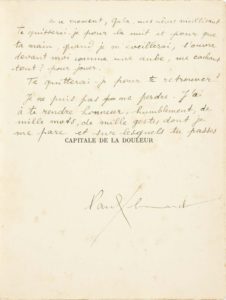 ce moment, qu'la
te quitterai-je pour la nuit et pour que
ta main, quand je m'éveillerai, s'ouvre
devant moi comme une aube, me cachant
tout? pour jouer.
Te quitterai-je pour te retrouver!
Je ne puis pas me perdre. J'ai
à te rendre honneur, humblement, de
mille mots, de mille gestes dont je
me pare et sur lesquels tu passes
CAPITALE DE LA DOULEUR
Paul Eluard